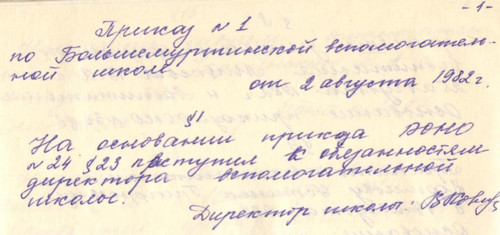 -1-
Приказ №1
по Большемуртинской вспомогатель-
ной школе
от 2 августа 1982г.
§1
На основании приказа РОНО
№24 §23 приступил к обязанностям
директора вспомогательной
школы.
Директор школы: